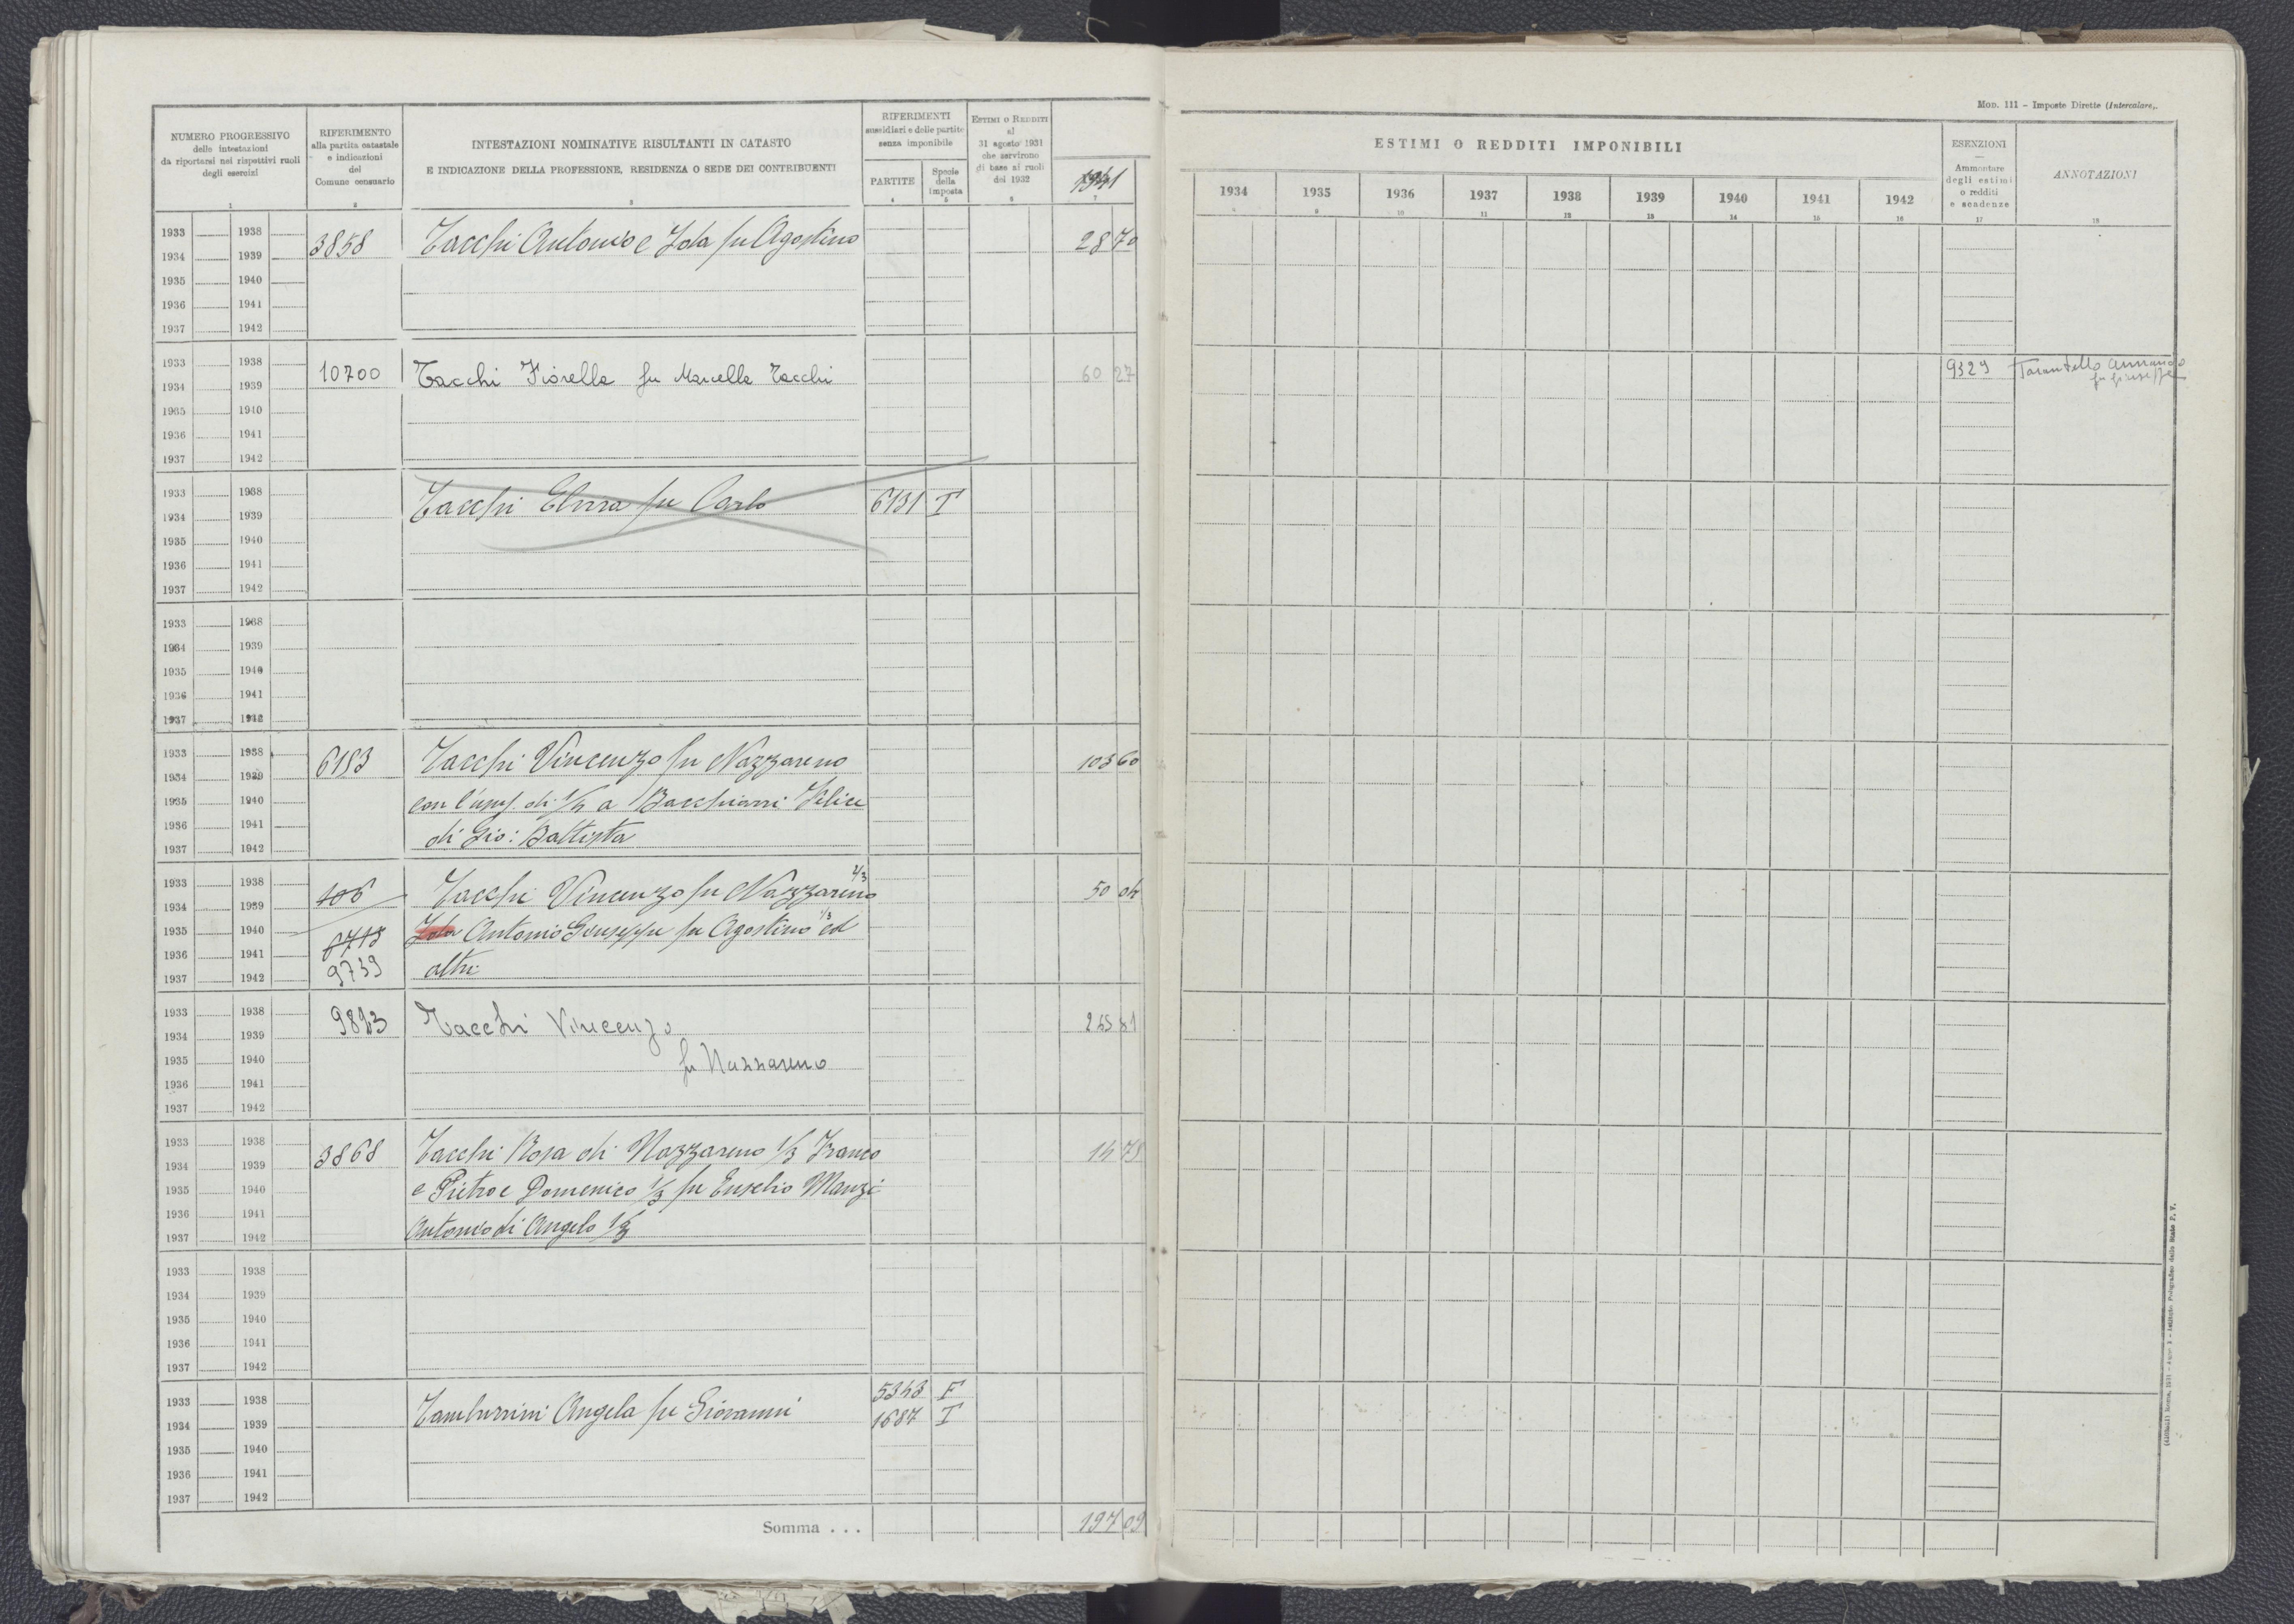 Mod. 111 - Imposte Dirette (Intercalare).
NUMERO PROGRESSIVO
delle intestazioni
da riportarsi nei rispettivi ruoli
degli esercizi
1
RIFERIMENTO
alla partita catastale
e indicazioni
del
Comune censuario
2
INTESTAZIONI NOMINATIVE RISULTANTI IN CATASTO
E INDICAZIONE DELLA PROFESSIONE, RESIDENZA O SEDE DEI CONTRIBUENTI
3
RIFERIMENTI
sussidiari e delle partite
senza imponibile
PARTITE
4
Specie
della
imposta
5
ESTIMI O REDDITI
al
31 agosto 1931
che servirono
di base ai ruoli
del 1932
6
1941
7
ESTIMI O REDDITI IMPONIBILI
1934 1935 1936 1937 1938 1939 1940 1941 1942
9 10 11 12 13 14 15 16
ESENZIONI
Ammontare
degli estimi
o redditi
e scadenze
17
ANNOTAZIONI
18
1933 1938
1934 1939 3858 Tacchi Antonio e Iola fu Agostino 28 70
1935 1940
1936 1941
1937 1942
1933 1938
1934 1939 10700 Tacchi Fiorella fu Marcella Tacchi 60 27 9329 Tarantello Armando
fu Giuseppe
1935 1940
1936 1941
1937 1942
1933 1938
1934 1939 Tacchi Elvira fu Carlo 6131 T
1935 1940
1936 1941
1937 1942
1933 1938
1934 1939
1935 1940
1936 1941
1937 1942
1933 1938
1934 1939 6183 Tacchi Vincenzo fu Nazzareno 103 60
1935 1940 con l'usuf. di a Felice
1936 1941
1937 1942 di Gio: Battista
1933 1938 2/3
1934 1939 106 Tacchi Vincenzo fu Nazzareno 50 04
1935 1940 Iola Antonio Giuseppe fu Agostino 1/3 ed
1936 1941 6713
1937 1942 9739 altri
1933 1938
1934 1939 9823 Tacchi Vincenzo
1935 1940 fu Nazzareno
1936 1941
1937 1942
1933 1938
1934 1939 3868 Tacchi Rosa di Nazzareno 1/3 Franco 14 75
1935 1940 e Pietro e Domenico 1/3 fu Eusebio Manzi
1936 1941
1937 1942 Antonio di Angelo 1/3
1933 1938
1934 1939
1935 1940
1936 1941
1937 1942
1933 1938 5343 F
1934 1939 Tamburrini Angela fu Giovanni 1687 T
1935 1940
1936 1941
1937 1942
Somma . . . 197 09